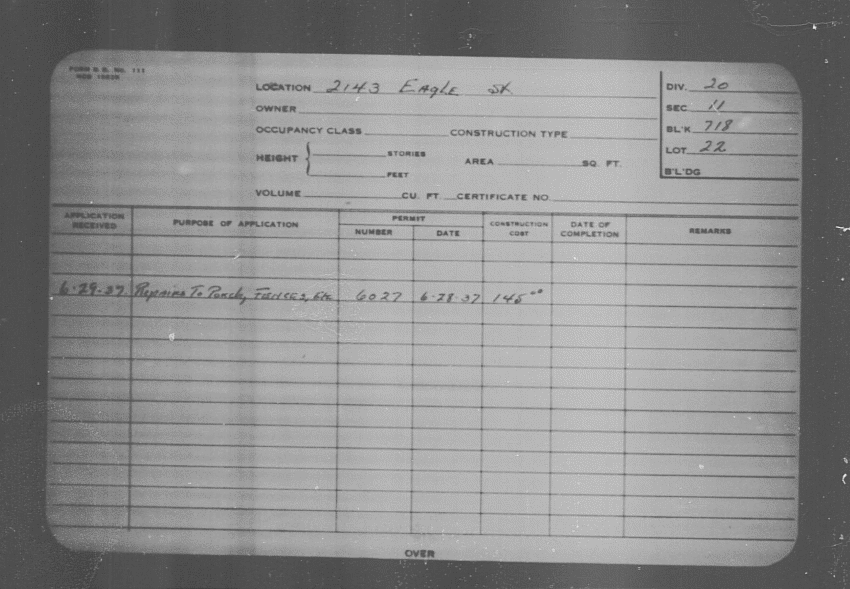 FORM B. B. No. 111
LOCATION 2143 EAGLE St
DIV. 20
OWNER
SEC 11
OCCUPANCY CLASS CONSTRUCTION TYPE
BL'K 718
HEIGHT { STORIES AREA SQ. FT.
LOT 22
FEET
B'L'DG
VOLUME CU. FT. CERTIFICATE NO.
APPLICATION RECEIVED PURPOSE OF APPLICATION PERMIT NUMBER DATE CONSTRUCTION COST DATE OF COMPLETION REMARKS
6-29-37 Repairs To Porch, FENCES, Etc 6027 6-28-37 145⁰⁰
OVER